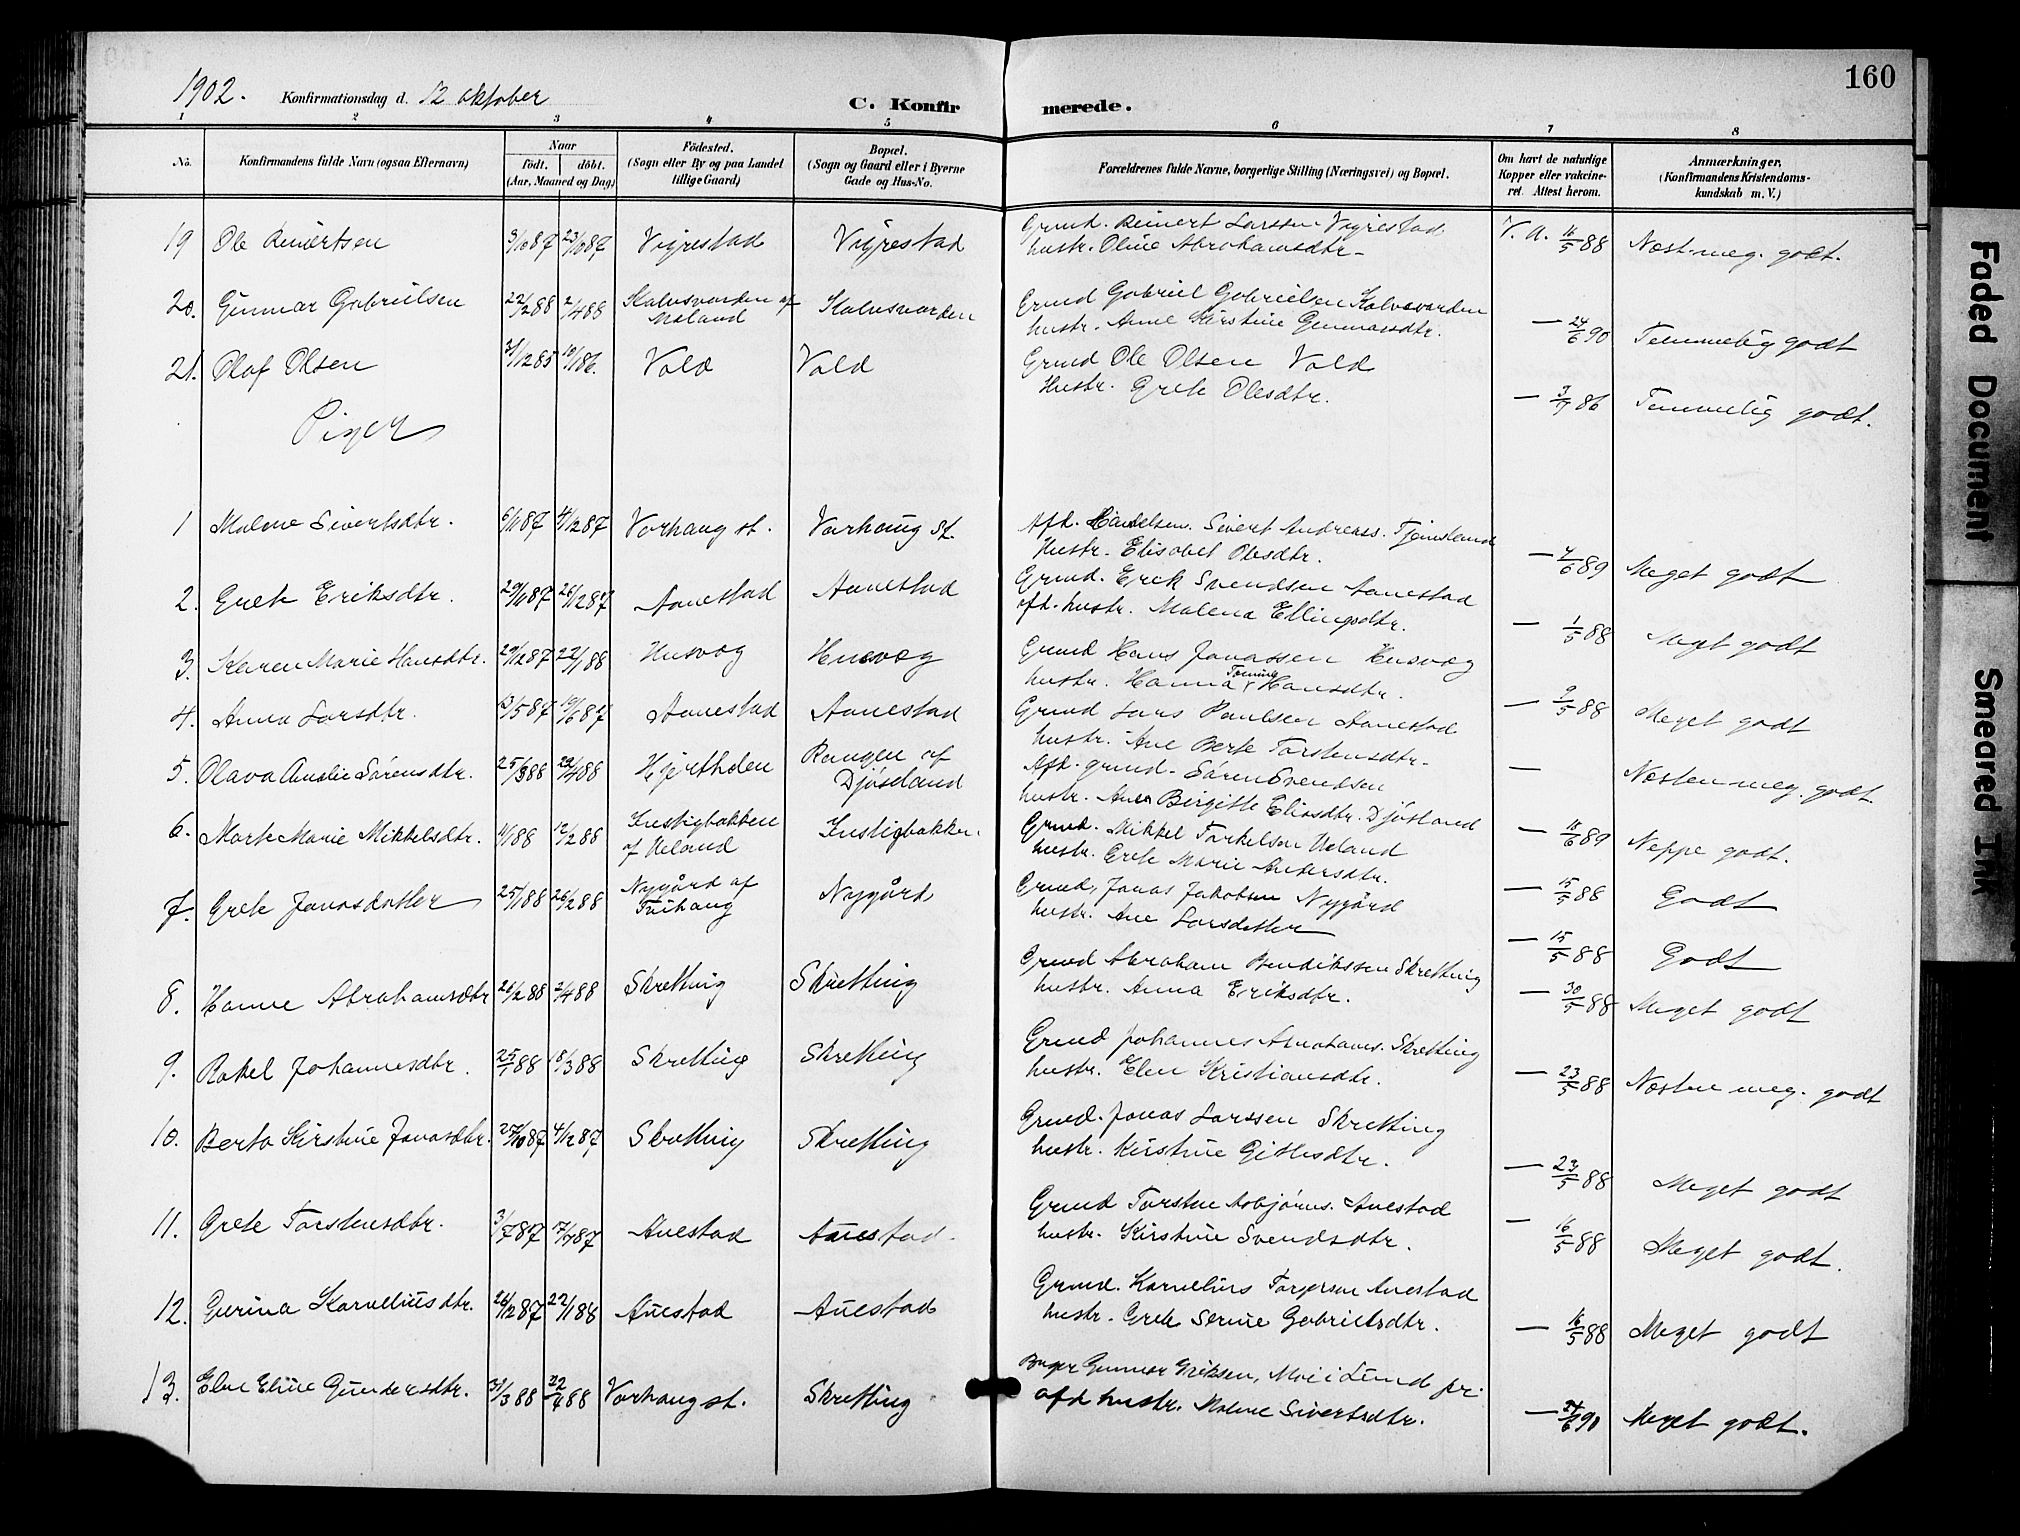 160
1902. Konfirmationsdag d. 12 oktober C. Konfirmerede.
1 2 3 4 5 6 7 8
No. Konfirmandens fulde Navn (ogsaa Efternavn) Naar født. døbt. (Aar, Maaned og Dag) Fødested. (Sogn eller By og paa Landet tillige Gaard) Bopæl. (Sogn og Gaard eller i Byerne Gade og Hus-No. Forældrenes fulde Navne, borgerlige Stilling (Næringsvei) og Bopæl. Om havt de naturlige Kopper eller vakcineret. Attest herom. Anmærkninger. (Konfirmandens Kristendomskundskab m. V.)
19 Ole Reinertsen 3/10 87 23/10 87 Vigrestad Vigrestad Grmd. Reinert Larssen Vigrestad
hustr. Oline Abrahamsdtr. V. a. 16/5 88 Næst. meg. godt.
20. Gunnar Gabrielsen 22/2 88 2/4 88 Kalvsvarden af Moland Kalvsvarden Grmd Gabriel Gabrielsen Kalvsvarden
hustr. Anne Kirstine Gunnarsdtr. — 24/6 90 Temmelig godt
21. Olaf Olsen 31/12 85 10/1 86. Vold Vold Grmd Ole Olsen Vold
Hustr. Grete Olesdtr. — 3/7 86 Temmelig godt.
Piger
1 Malene Sivertsdtr. 6/11 87 4/12 87 Varhaug st. Varhaug st. Afd. Handelsm. Sivert Andreass. Tjemsland
Hustr. Elisabet Olesdtr. — 4/6 89 Meget godt
2. Grete Eriksdtr. 29/11 87 26/12 87 Aanestad Aanestad Grmd. Erik Svendsen Aanestad
afd. hustr. Malena Ellingsdtr. — 1/5 88 Meget godt
3. Karen Marie Hansdtr. 29/12 87 22/1 88 Husvæg Husvæg Grmd Hans Jonassen Husvæg
hustr. Hanna Tomine Hansdtr. — 9/5 88 Meget godt
4. Anna Larsdtr. 13/5 87 19/6 87 Aanestad Aanestad Grmd Lars Paulsen Aanestad
hustr. Ane Berte Torstensdtr. — Næsten meg. godt.
5. Olava Amalie Sørensdtr. 25/3 88 22/4 88 Rongen af Djøsland Afd. grmd. Søren Svendsen
hustr. Ane Birgitte Eliasdtr. Djøsland — 18/6 89 Neppe godt.
6. Marte Marie Mikkelsdtr. 11/1 88 12/2 88 Knstigbakken af Ueland Knstigbakken Grmd. Mikkel Torkelsen Ueland
hustr. Grete Marie Andersdtr. — 15/5 88 Godt
7. Grete Jonasdatter 25/1 88 26/2 88 Nygård af Tuihaug Nygård Grmd, Jonas Jakobsen Nygård
hustr. Ane Larsdatter — 15/5 88 Godt
8. Hanne Abrahamsdtr 26/2 88 2/4 88 Skretting Skretting Grmd Abraham Bendikssen Skretting
hustr. Anna Eriksdtr. — 30/5 88 Meget godt
9. Rakel Johannesdtr. 25/1 88 18/3 88 Skretting Skretting Grmd Johannes Abrahams. Skretting
hustr. Elen Kristiansdtr. — 23/5 88 Næsten meg. godt
10. Berta Kirstine Jonasdtr. 27/10 87 4/12 87 Skretting Skretting Grmd. Jonas Larssen Skretting
hustr. Kirstine Gitlesdtr. — 23/5 88 Meget godt
11. Grete Torstensdtr. 3/7 87 17/7 87 Auestad Auestad Grmd Torsten Asbjørns. Auestad
hustr. Kirstine Svendsdtr. — 16/5 88 Meget godt.
12. Gurina Korneliusdtr. 26/12 87 22/1 88 Auestad Auestad Grmd. Kornelius Torgersen Auestad
hustr. Grete Serine Gabrielsdtr. — 16/5 88 Meget godt
13. Elen Eline Gundersdtr. 31/3 88 22/4 88 Varhaug st. Skretting Bager Gunnar Eriksen, Moi i Lund pr.
afd hustr. Malene Sivertsdtr. — 24/6 90 Meget godt.
Faded Document
Smeared Ink